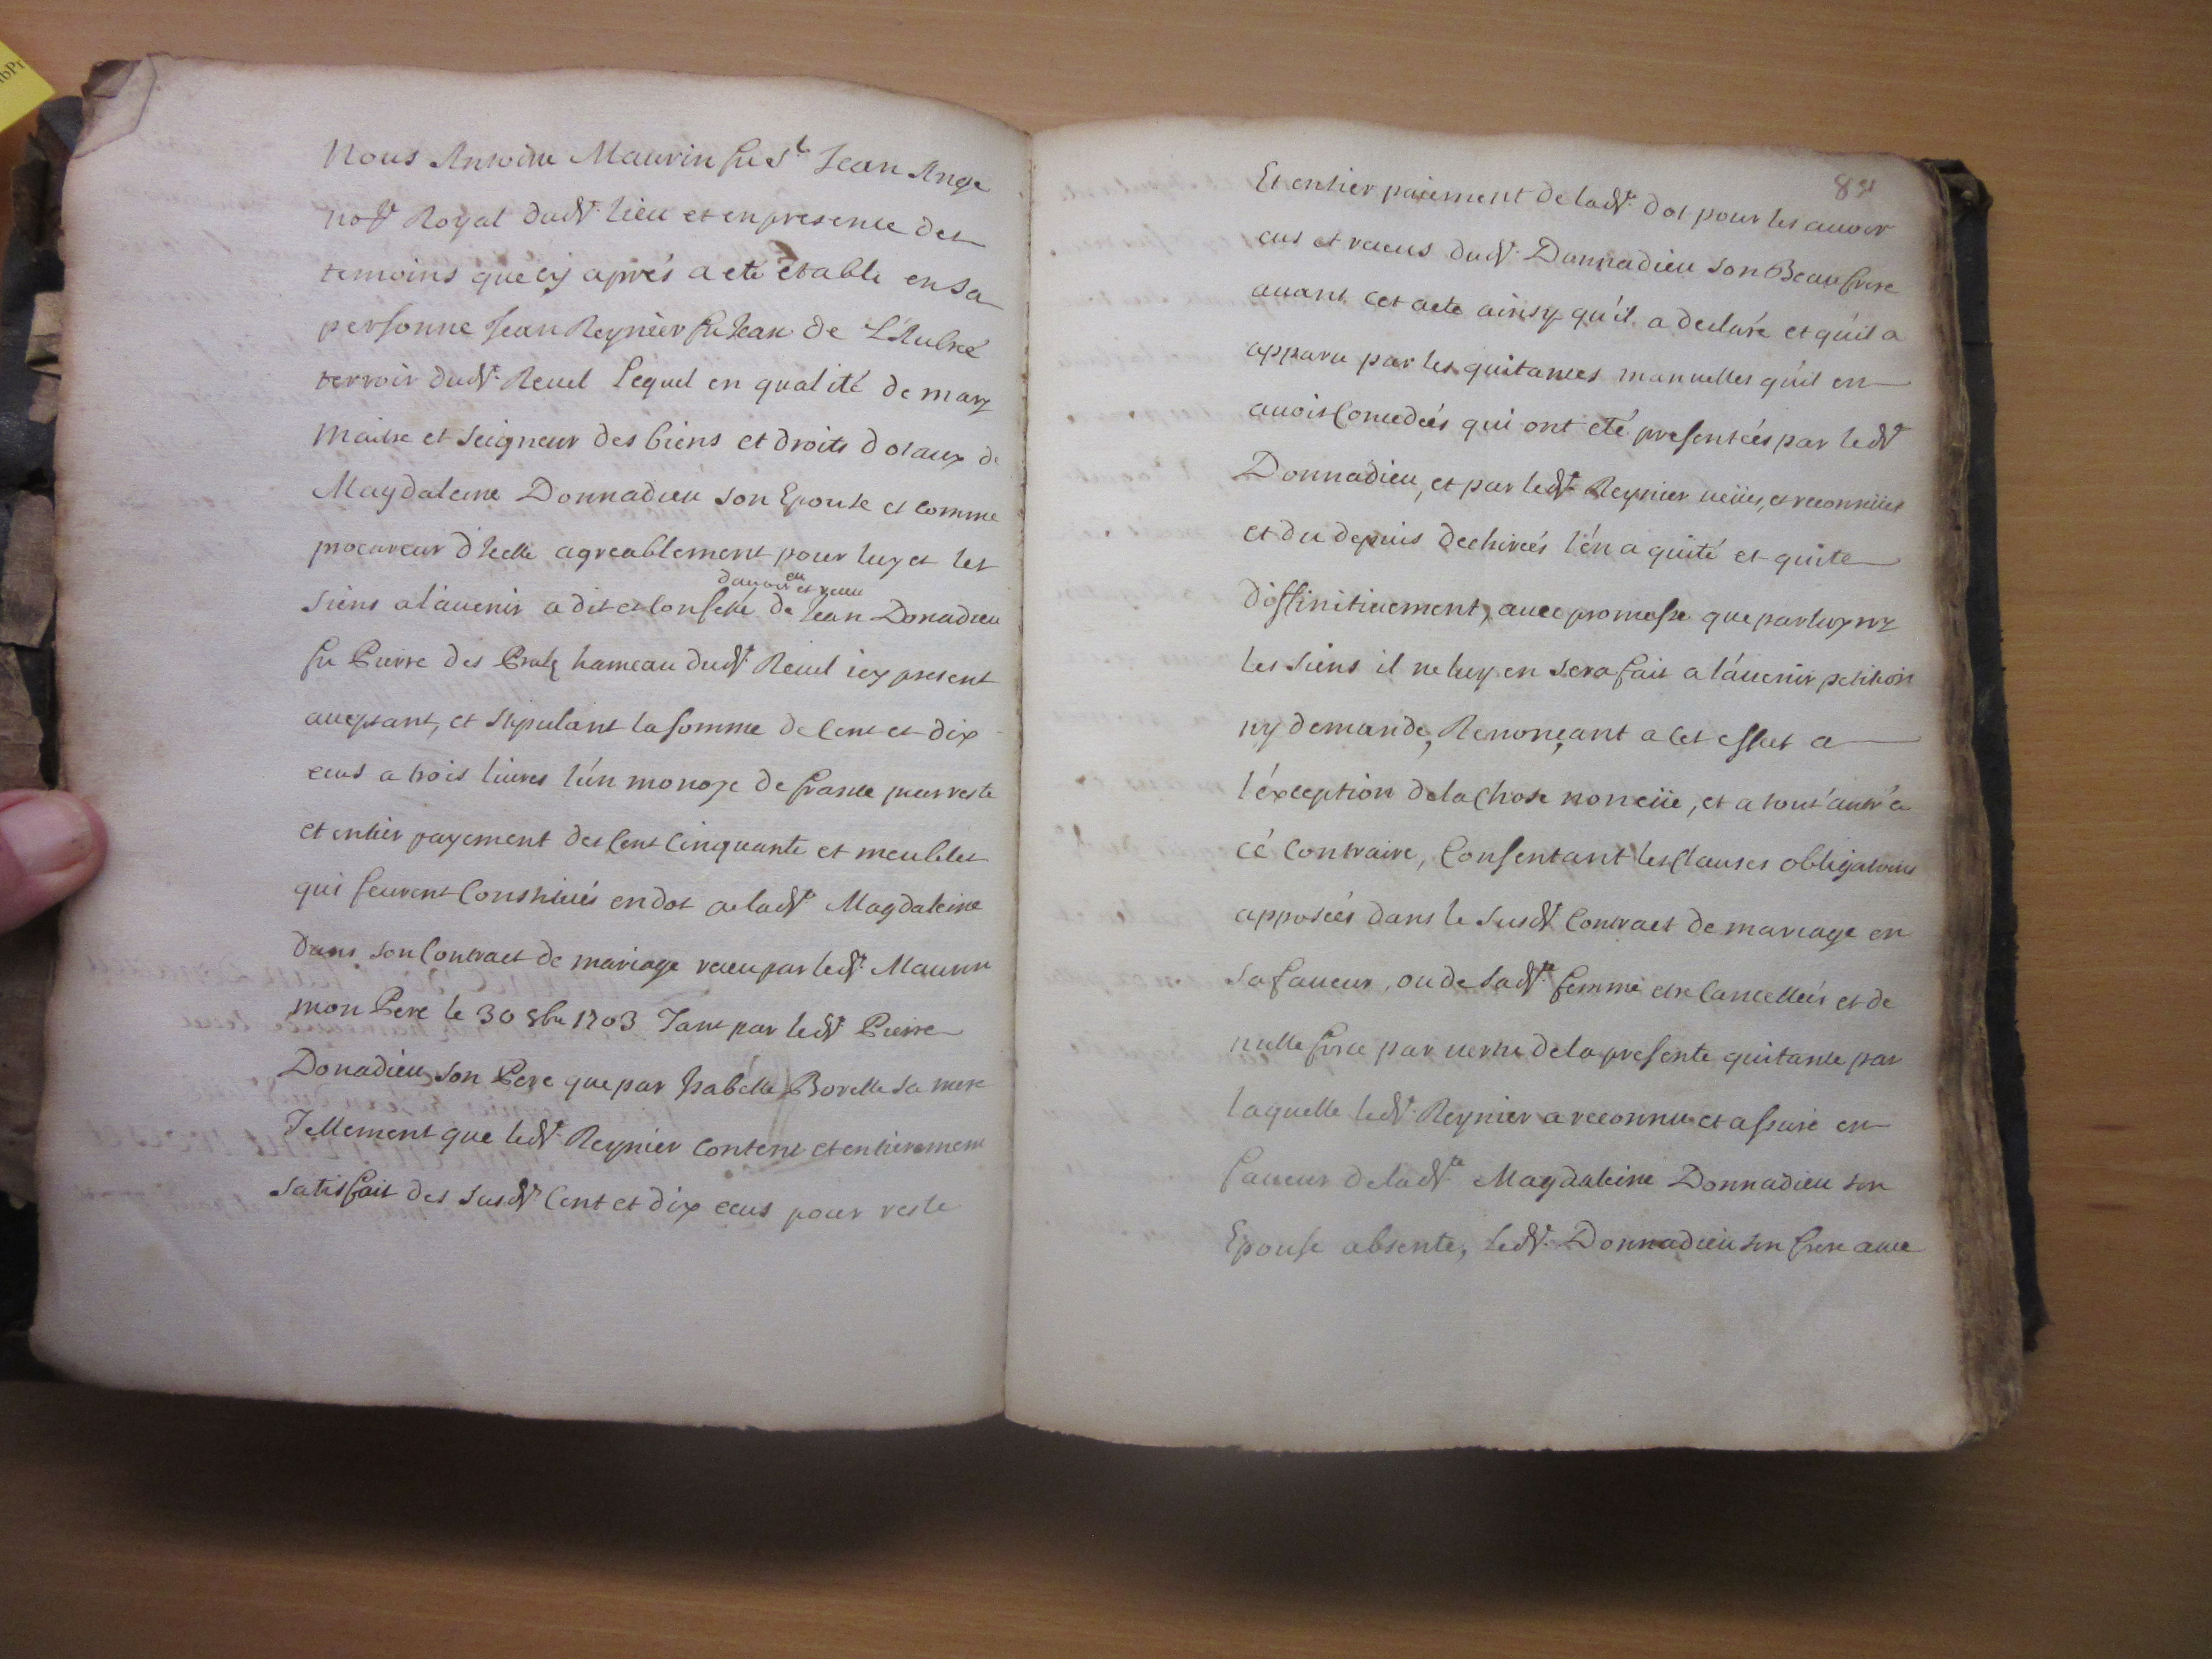 Nous Antoine Maurin fu Sr Jean Ange
nore Royal dudt. lieu et en presence des
temoins que cy aprés a eté etabli en sa
personne Jean Reynier fu Jean de L'Aubreé
terroir dudt. Revel Lequel en qualité de mary
maitre et seigneur des biens et droits dotaux de
Magdaleine Donnadieu son Epouse et comme
procureur d'Icelle agreablement pour luy et les
d'avoir eu et receu
siens a l'avenir a dit et confessé de Jean Donadieu
fu Pierre des hameau dudt. Revel icy present
acceptant, et stipulant la somme de cent et dix
ecus a trois livres l'ún monoye de france pour reste
et entier payement des cent cinquante et meubles
qui feurent constitués en dot a ladte Magdaleine
dans son Contract de mariage receu par ledt. Maurin
mon Pere le 30 8bre 1703 Tant par ledt Pierre
Donadieu son Pere que par Isabelle Borelle sa mere
Tellement que ledt. Reynier content et entierement
satisfait des susdts cent et dix ecus pour reste
84
Et entier paiement de ladte. dot pour les avoir
eus et receus dudt. Donnadieu son Beaufrere
avant cet acte ainsy qu'il a declaré et qu'il a
apparu par les quitances manuelles qu'il en
avoit Concedeés qui ont eté presenteés par ledt
Donnadieu, et par ledt Reynier veües, et reconnües
et du depuis dechireés l'én a quité et quite
diffinitivement, avec promesse que par luy ny
les siens il ne luy en sera fait a l'ávenir petition
ny demande, Renonçant a cet effet a
l'éxception de la Chose non eüe, et a tout'autr'a
cé Contraire, Consentant les Clauses obligatoires
apposeés dans le susdt Contract de mariage en
sa faveur, ou de sadte. femme etre Cancelleés et de
nulle force par vertu de la presente quitance par
laquelle ledt. Reynier a reconnu et assuré en
faveur de ladte. Magdaleine Donnadieu son
Epouse absente, ledt. Donnadieu son frere avec